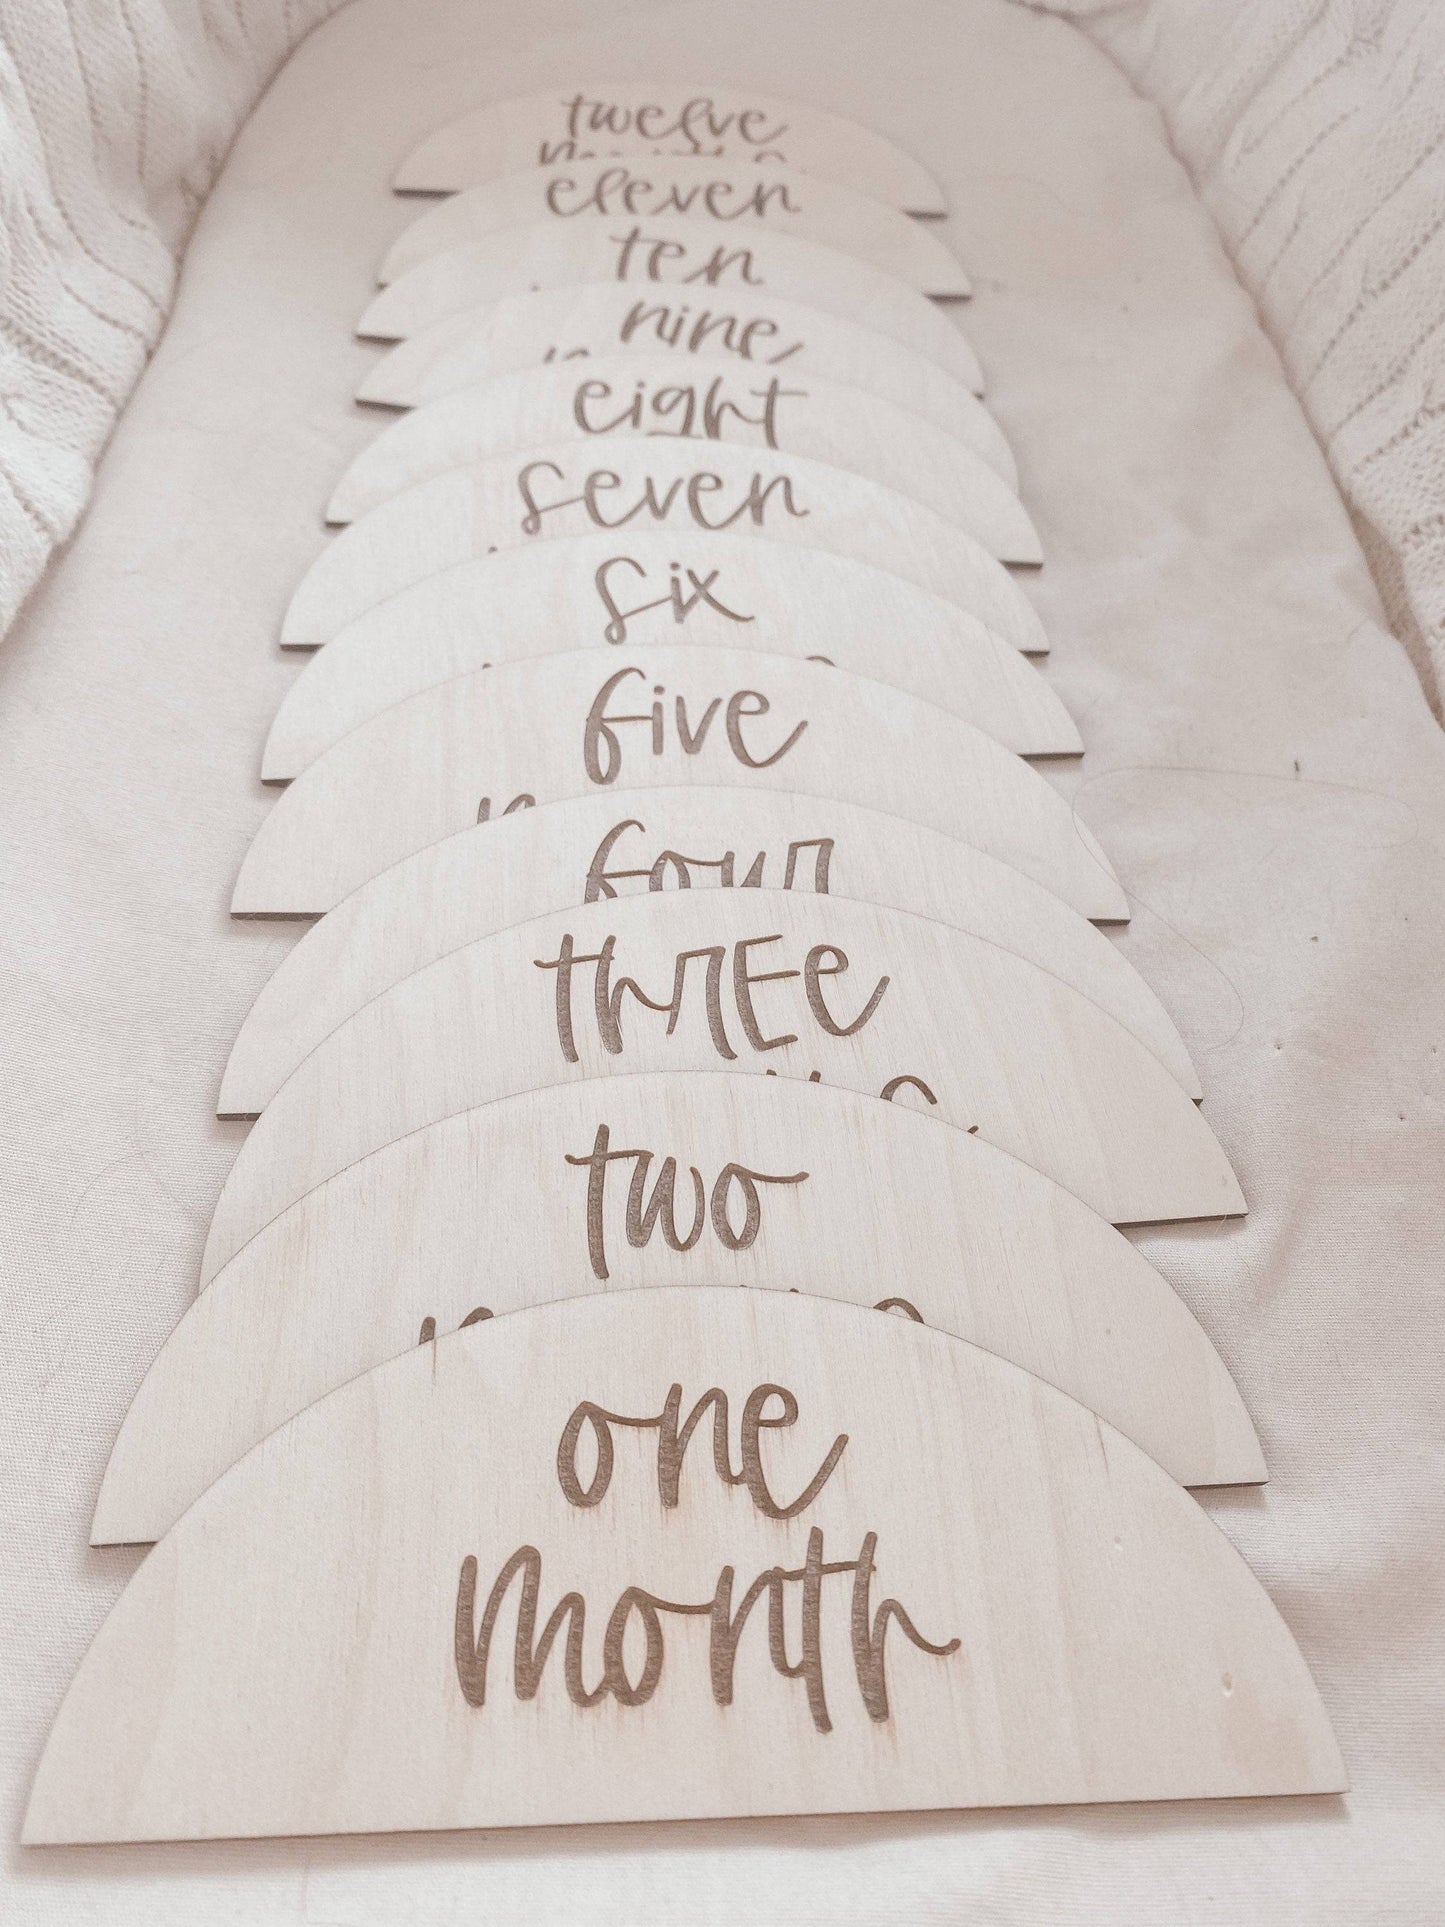 twelve
eleven
ten
nine
eight
seven
six
five
four
thREE
two
one
month